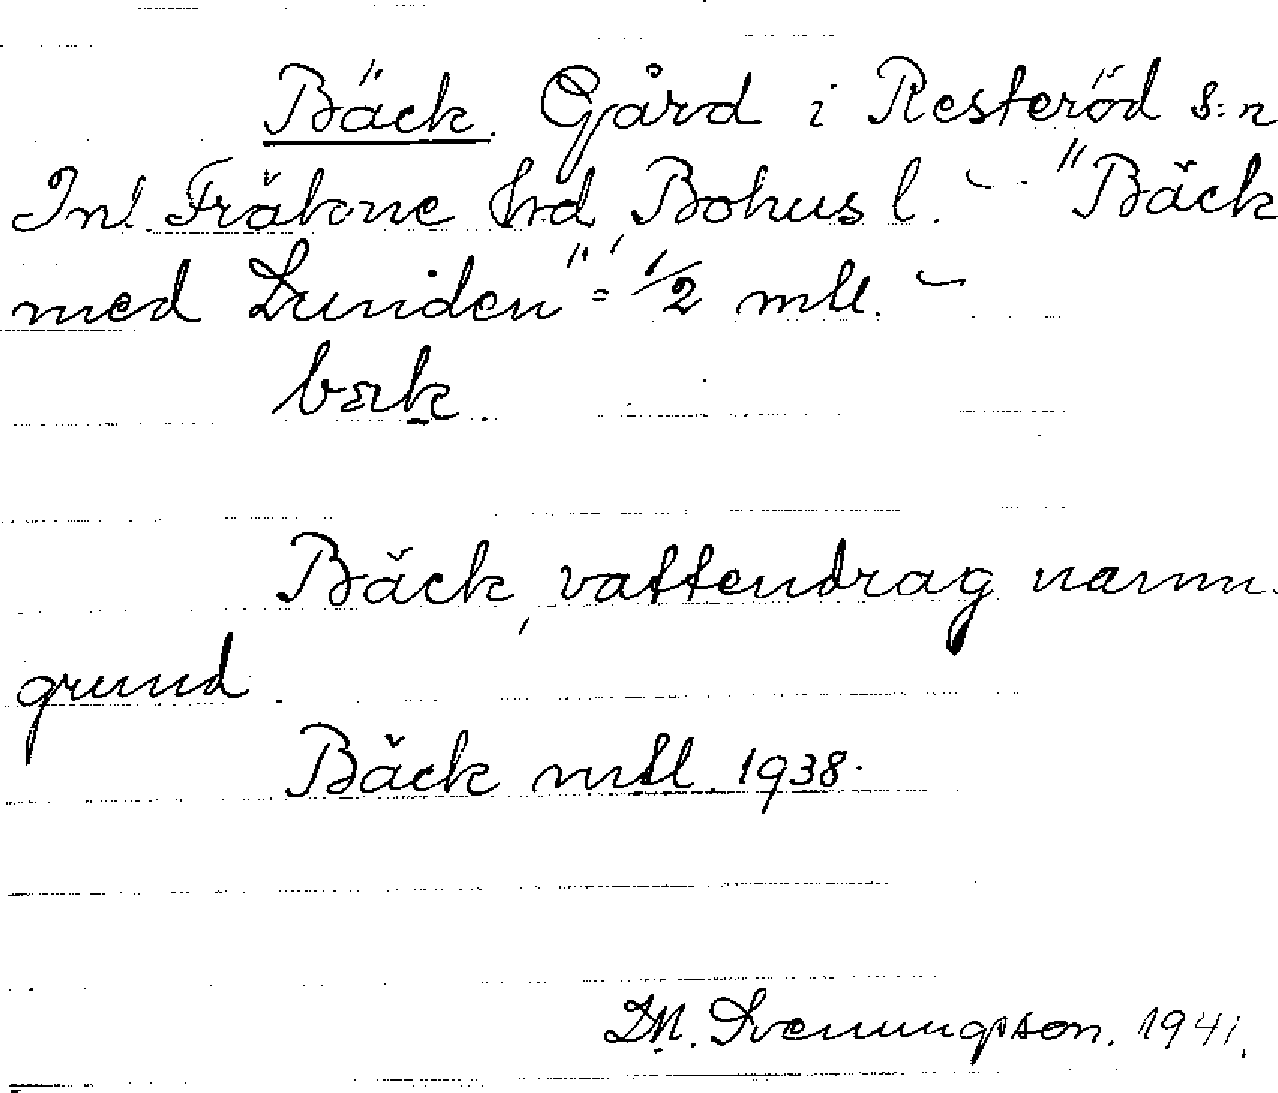 Bäck. Gård i Resteröd s:n
Inl. Fräkne hrd, Bohus l. - "Bäck
med Lunden" = 1/2 mtl. -
bæk.
Bäck, vattendrag namn-
grund.
Bäck mtl. 1938.
Svenungsson. 1941.